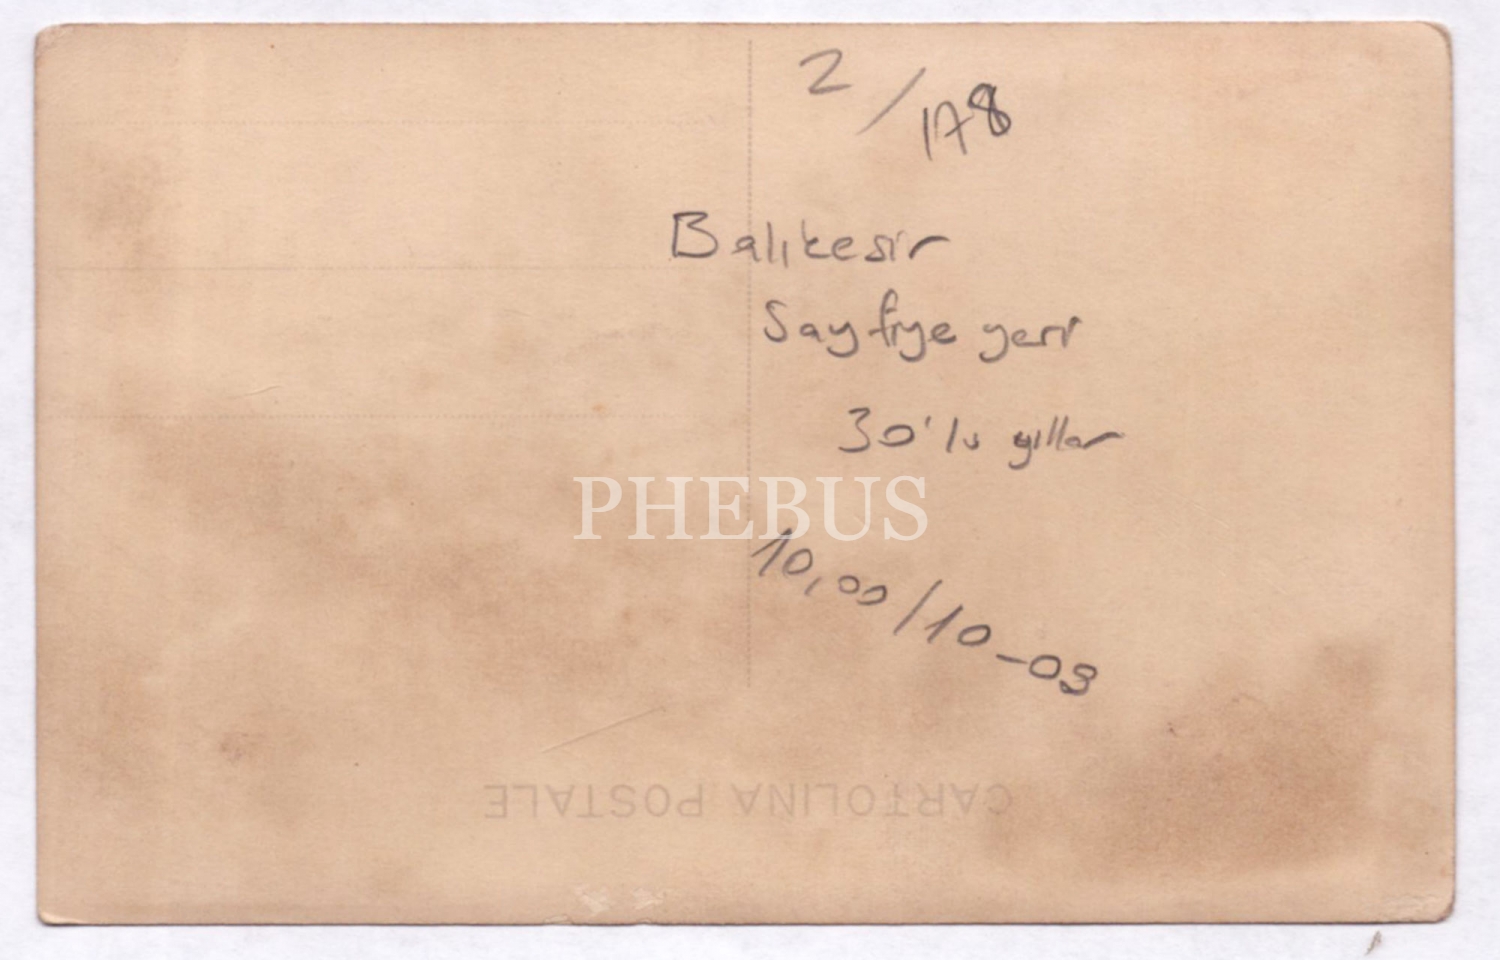 2/178
Balıkesir
Sayfiye yeri
30'lu yıllar
PHEBUS
10,00/10-03
CARTOLINA POSTALE